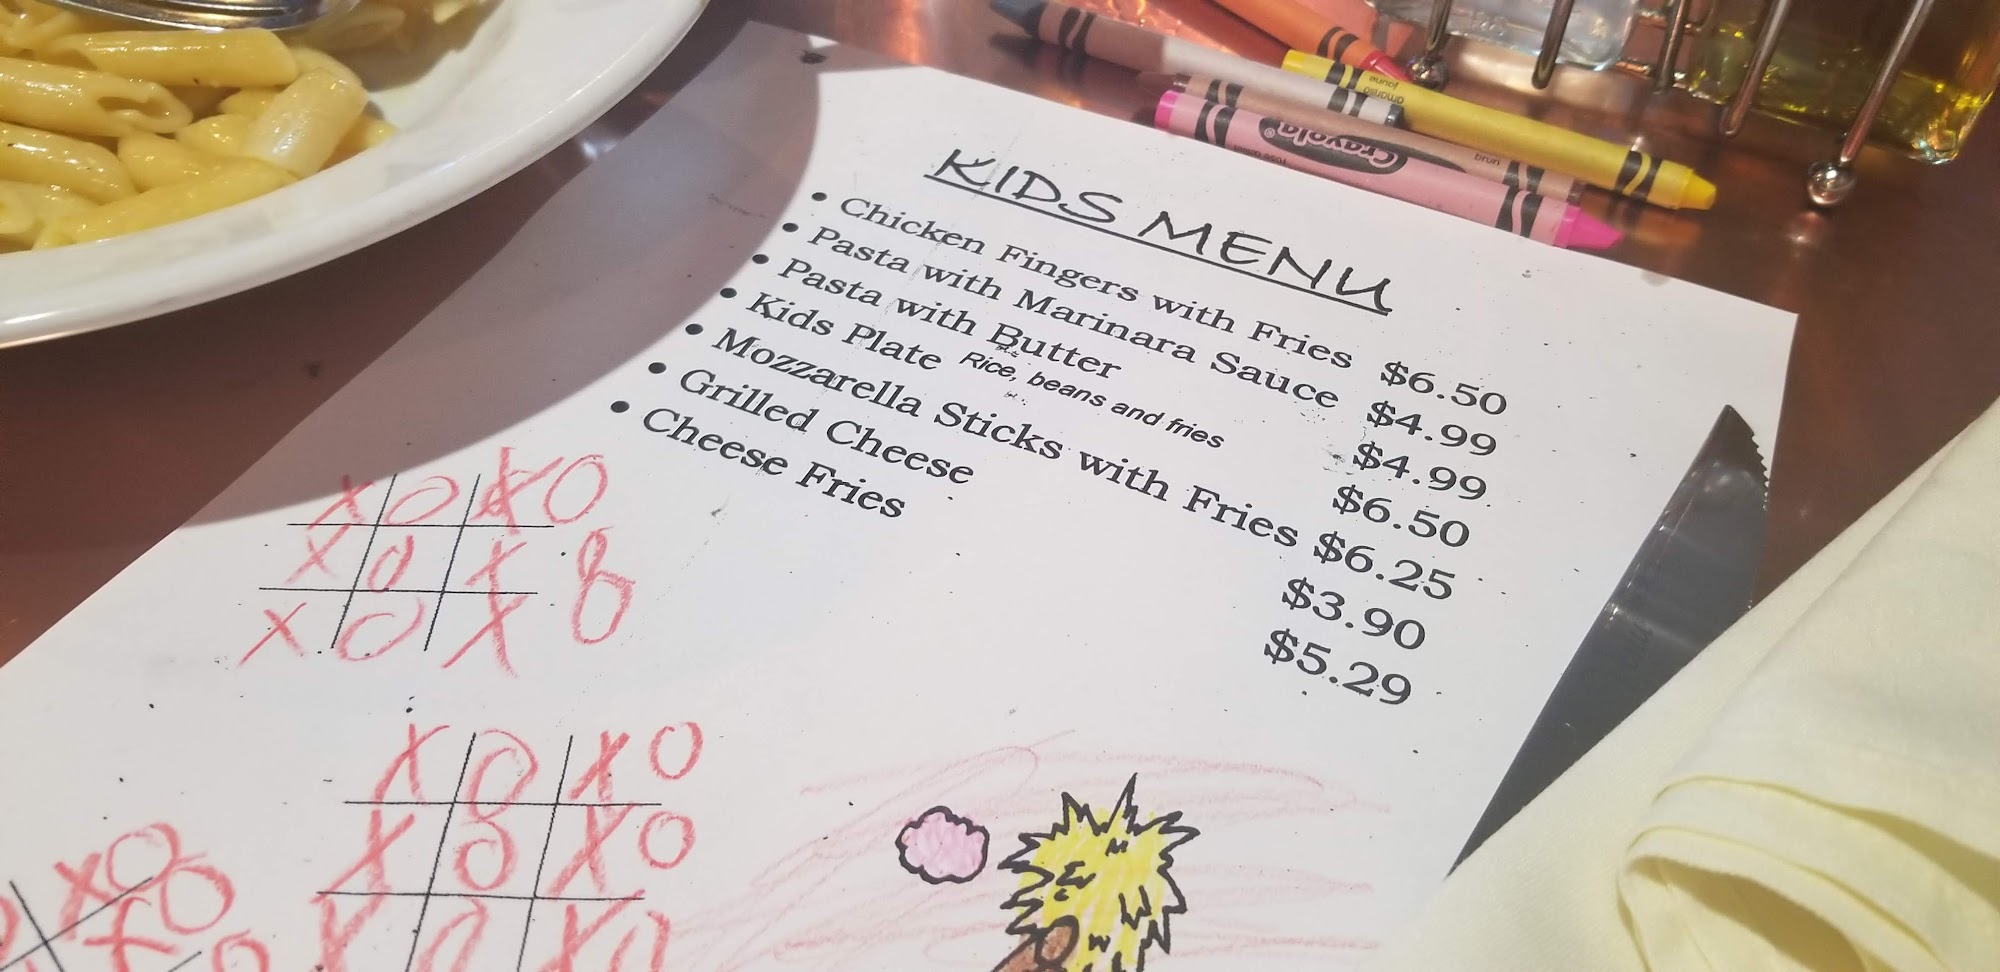 amarillo
jaune
Crayola®
brun
KIDS MENU
• Chicken Fingers with Fries $6.50
• Pasta with Marinara Sauce $4.99
• Pasta with Butter $4.99
• Kids Plate Rice, beans and fries $6.50
• Mozzarella Sticks with Fries $6.25
• Grilled Cheese $3.90
• Cheese Fries $5.29
X O X O
X O X 8
X O X
X O X O
X O X O
X O X O